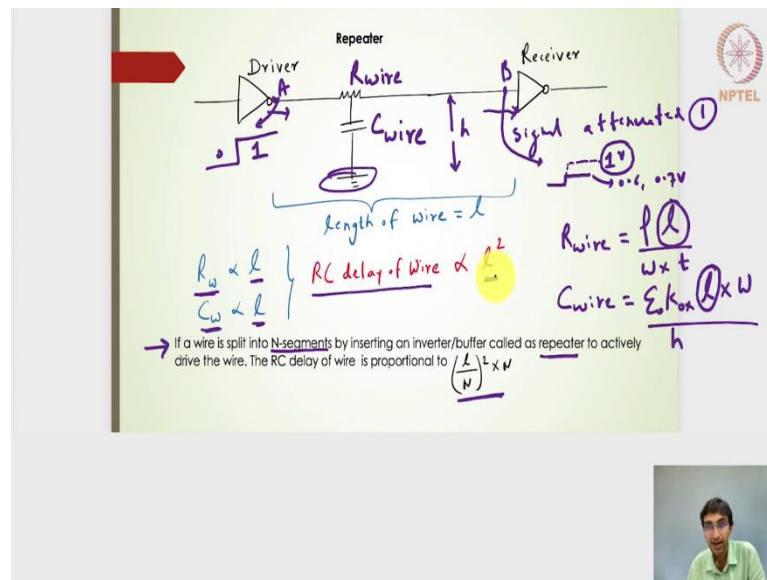 Repeater
Driver
Receiver
A
Rwire
B
NPTEL
Cwire
h
signal attenuated ①
0
1
1V
0.6, 0.7V
length of wire = l
Rwire = ρ l / w x t
Rw ∝ l
RC delay of wire ∝ l²
Cw ∝ l
Cwire = ε₀ kox l x w / h
→ If a wire is split into N-segments by inserting an inverter/buffer called as repeater to actively
drive the wire. The RC delay of wire is proportional to (l/N)² x N